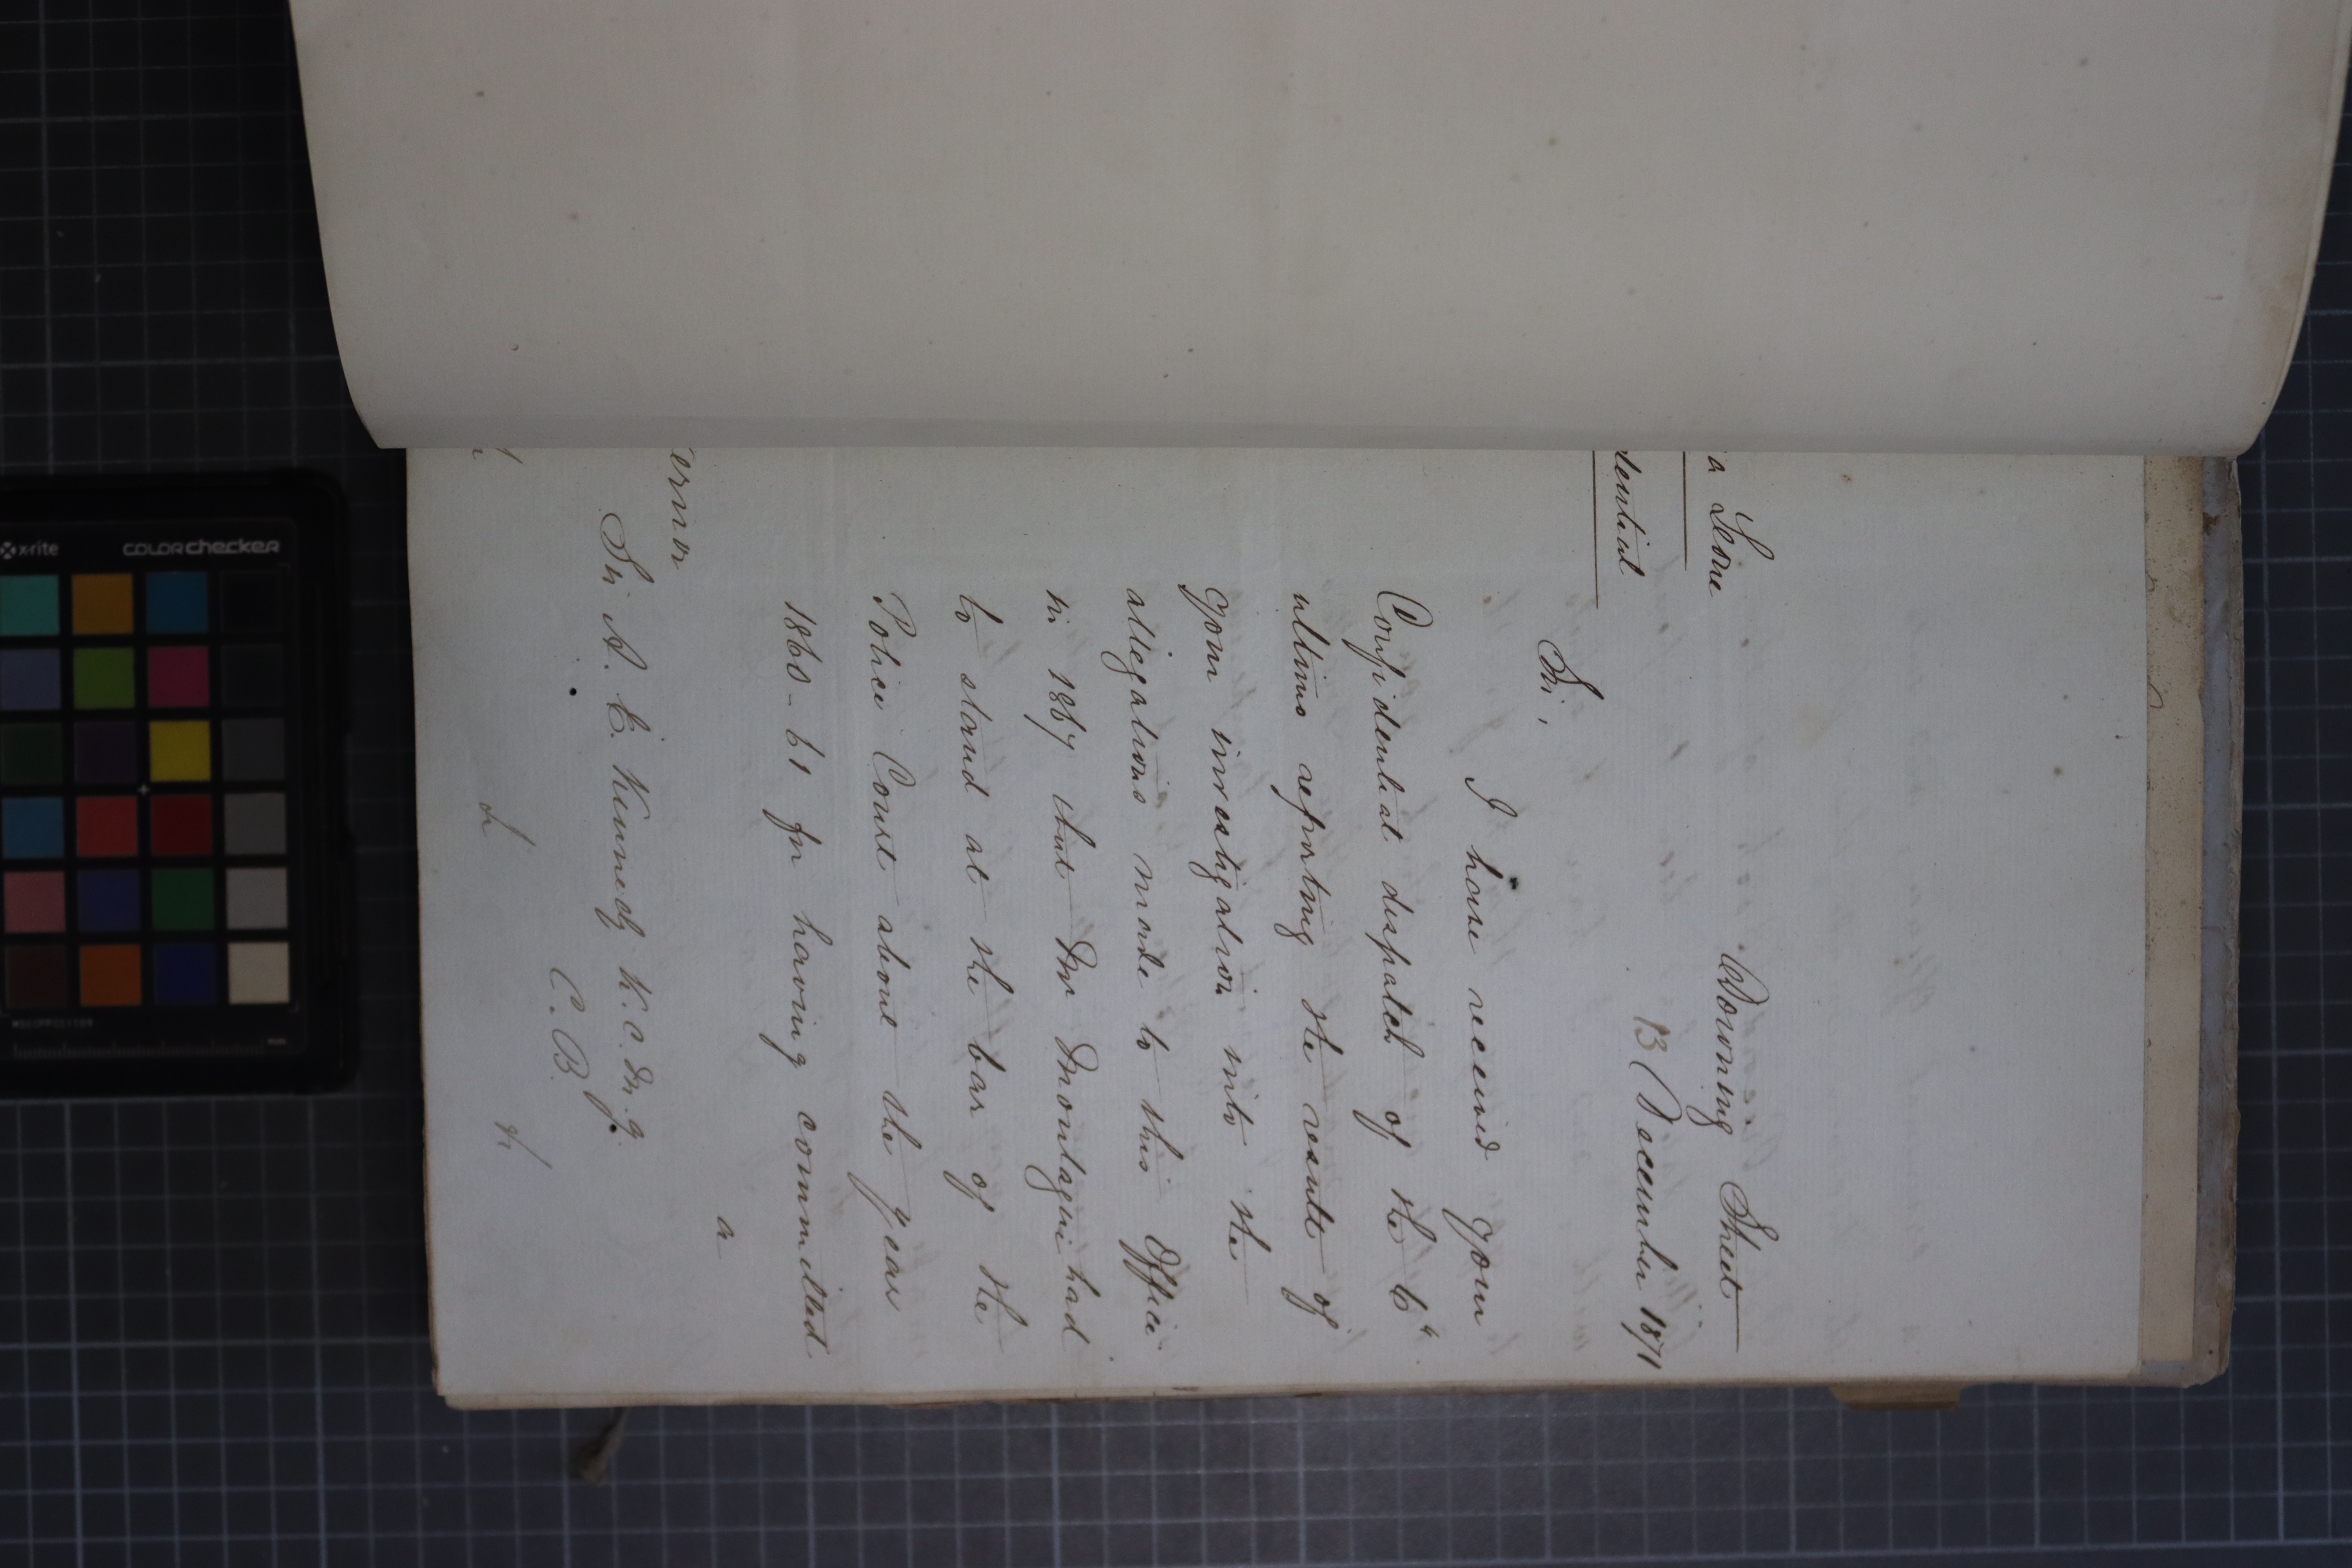 a Leone
Downing Street
dential
13 December 1871
Sir,
I have received your
Confidential dispatch of the 6th
ultimo reporting the result of
your investigation into the
allegations made to this Office
in 1867 that Mr Montague had
to stand at the bar of the
Police Court about the year
1860-61 for having committed
a
ernor
Sir A. E. Kennedy K.C.M.G.
C.B.
x-rite
colorchecker